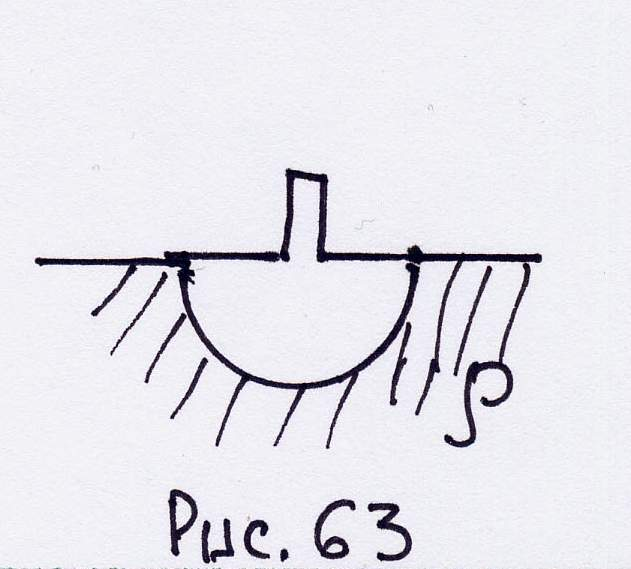 ρ
Рис. 63